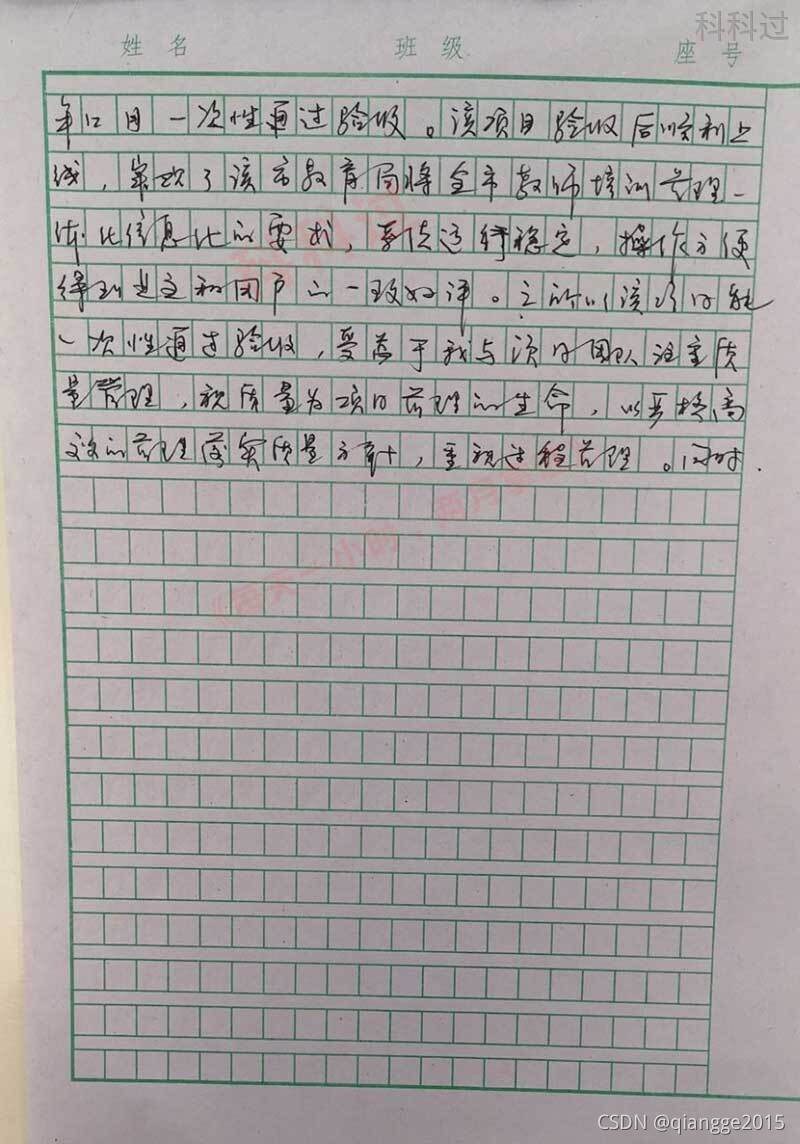 科科过
姓名 班级 座号
年12月一次性通过验收。该项目验收后顺利上
线，实现了该市教育局将全市教师培训管理一
体化信息化的要求，系统运行稳定，操作方便
得到业主和用户的一致好评。之所以该项目能
一次性通过验收，受益于我与项目团队注重质
量管理，视质量为项目管理的生命，以严格高
效的管理落实质量方针，重视过程管理。同时.
CSDN @qiangge2015